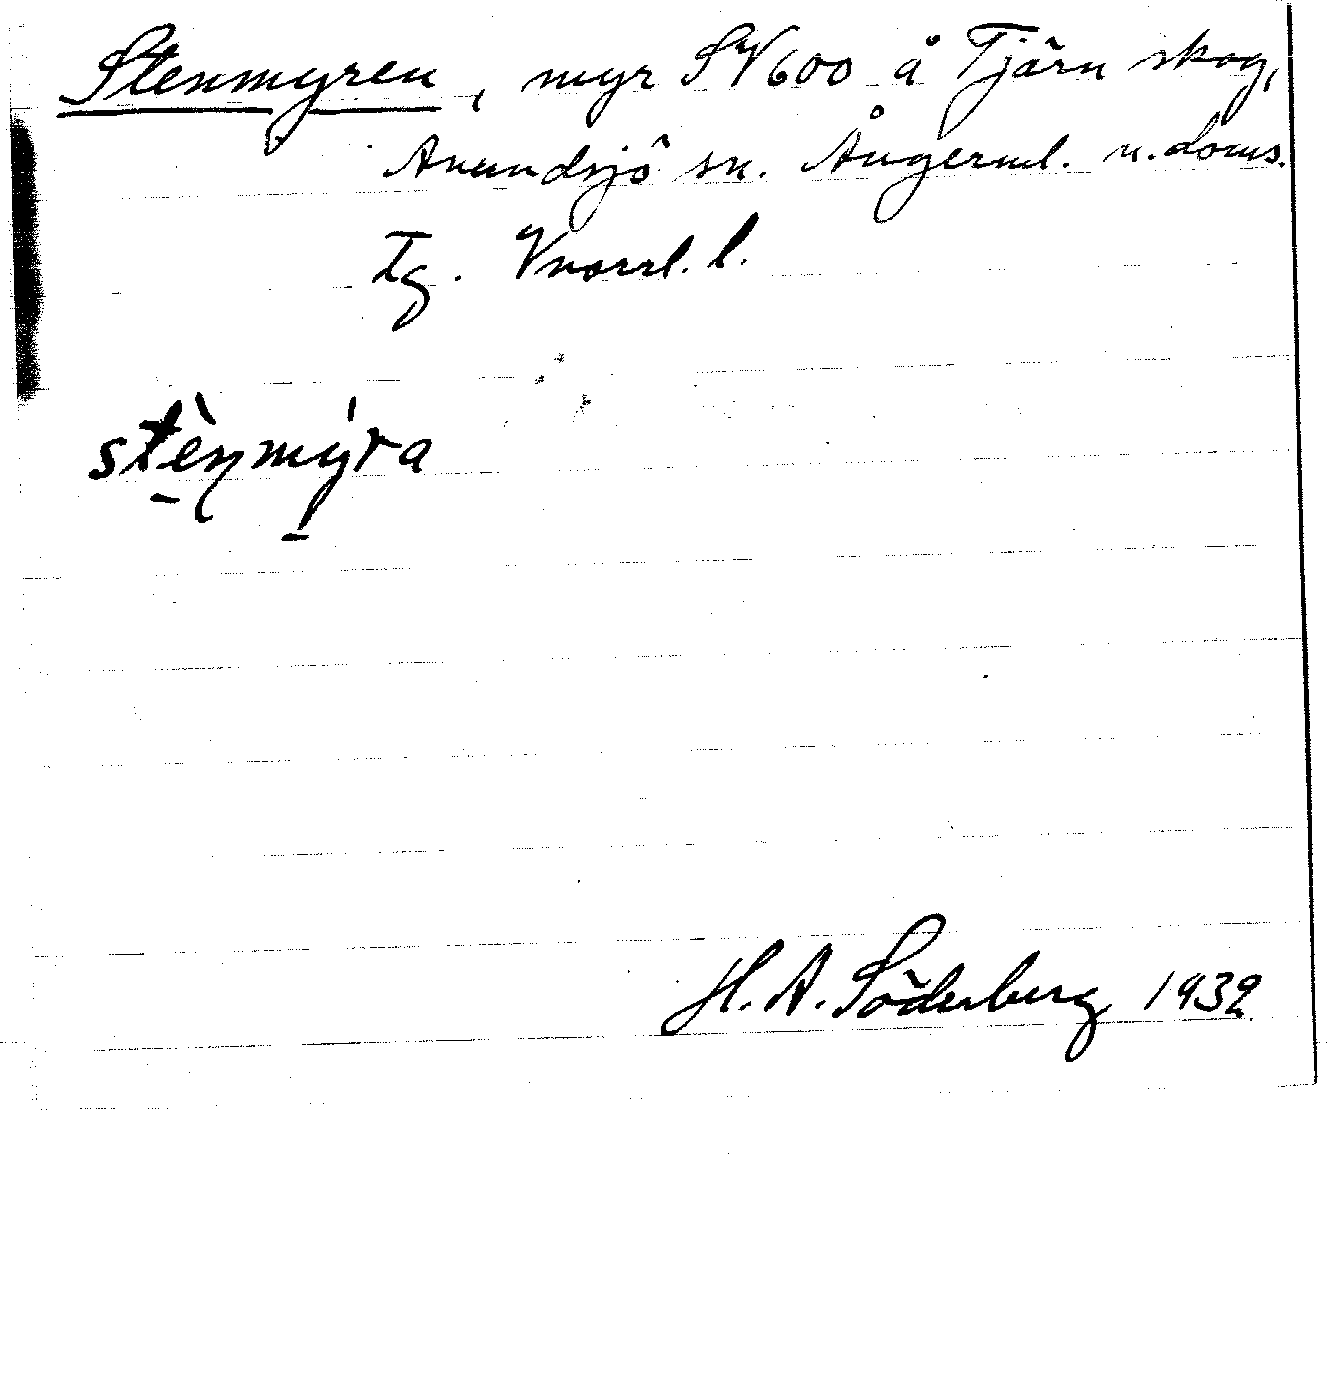 Stenmyren, myr SV600 å Tjärn skog,
Anundsjö sn. Ångerml. n. doms.
Tg. Vnorrl. l.
stènmýra
H. A. Söderberg 1932